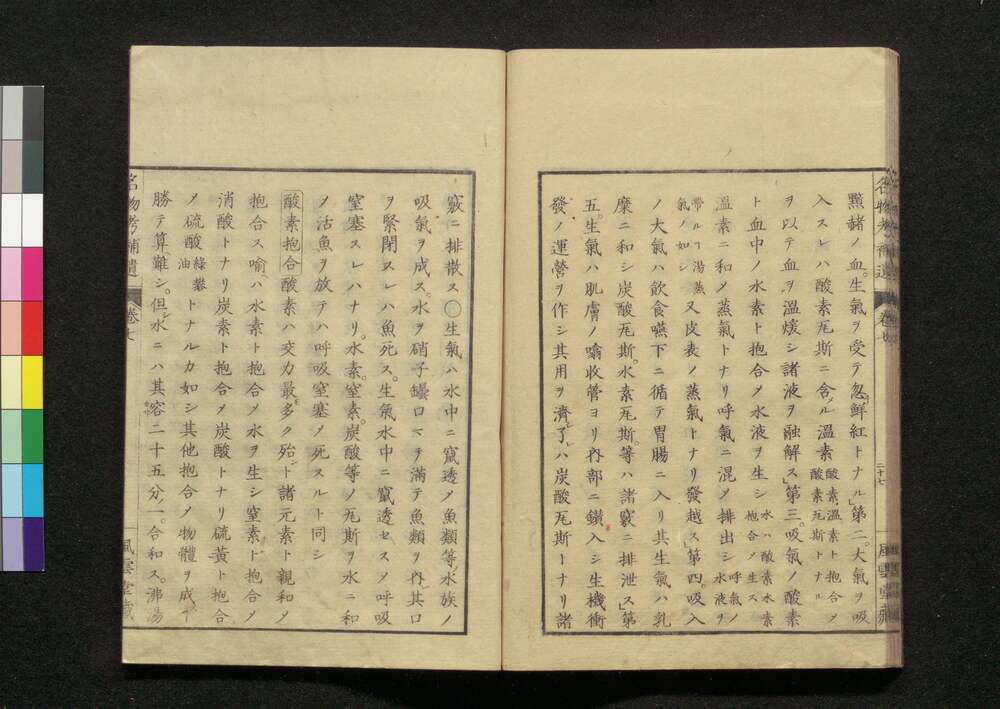 黑赭ノ血。生氣ヲ受テ忽鮮紅トナル」第二。大氣ヲ吸
入スレハ酸素瓦斯ニ含ル溫素酸素溫素ト抱合メ酸素瓦斯トナル
ヲ以テ血ヲ溫煖シ諸液ヲ融解ス」第三。吸氣ノ酸素
ト血中ノ水素ト抱合メ水液ヲ生シ水ハ酸素水素抱合ノ生ス
溫素ニ和メ蒸氣トナリ呼氣ニ混メ排出シ呼氣ノ水液ヲ
帶ルヿ湯蒸氣ノ如シ又皮表ノ蒸氣トナリ發越ス」第四。吸入
ノ大氣ハ飮食嚥下ニ循テ胃腸ニ入リ共生氣ハ乳
糜ニ和シ炭酸瓦斯。水素瓦斯。等ハ諸竅ニ排泄ス」第
五。生氣ハ肌膚ノ噏收管ヨリ內部ニ鑚入シ生機衝
發ノ運營ヲ作シ其用ヲ濟了ハ炭酸瓦斯トナリ諸
二十七
名物考補遺
卷七
風雲堂藏
竅ニ排散ス〇生氣ハ水中ニ竄透メ魚類等水族ノ
吸氣ヲ成ス。水ヲ硝子罎口マヲ滿テ魚類ヲ內其口
ヲ緊閉スレハ魚死ス。生氣水中ニ竄透セスメ呼吸
窒塞スレハナリ。水素。窒素。炭酸等ノ瓦斯ヲ水ニ和
メ活魚ヲ放テハ呼吸窒塞メ死スルト同シ
酸素抱合酸素ハ交力最多ク殆ト諸元素ト親和メ
抱合ス喻ハ水素ト抱合メ水ヲ生シ窒素ト抱合メ
消酸トナリ炭素ト抱合メ炭酸トナリ硫黃ト抱合
メ硫酸綠攀油トナルカ如シ其他抱合メ物體ヲ成ヿ
勝テ算難シ。但水ニハ其容二十五分ノ一。合和ス。沸湯
名物考補遺
卷七
風雲堂藏